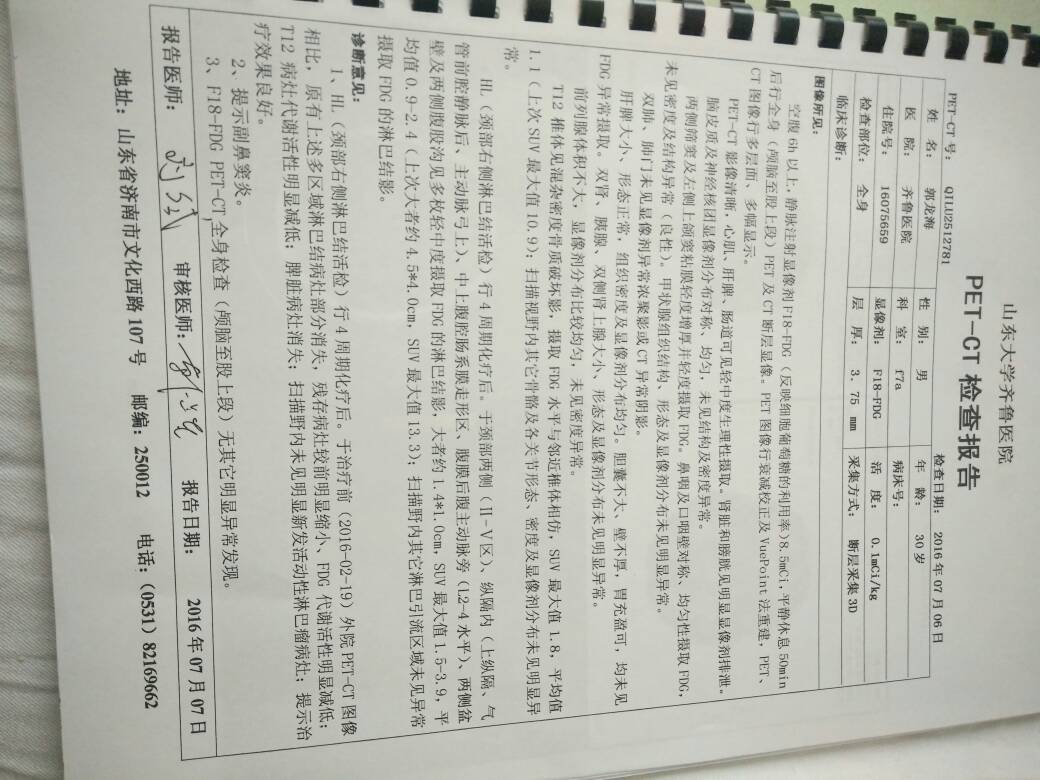 山东大学齐鲁医院
PET-CT 检查报告
PET-CT 号: QILU2512781 检查日期: 2016 年 07 月 06 日
姓 名: 郭龙海 性 别: 男 年 龄: 30 岁
医 院: 齐鲁医院 科 室: f7a 病床号:
住院号: 16075659 显像剂: F18-FDG 活 度: 0.1mCi/kg
检查部位: 全身 层 厚: 3. 75 mm 采集方式: 断层采集 3D
临床诊断:
图像所见:
空腹 6h 以上，静脉注射显像剂 F18-FDG（反映细胞葡萄糖的利用率）8.5mCi，平静休息 50min
后行全身（颅脑至股上段）PET 及 CT 断层显像。PET 图像行衰减校正及 VuePoint 法重建，PET、
CT 图像行多层面、多幅显示。
PET-CT 影像清晰，心肌、肝脾、肠道可见轻中度生理性摄取。肾脏和膀胱见明显显像剂排泄。
脑皮质及神经核团显像剂分布对称、均匀，未见结构及密度异常。
两侧筛窦及左侧上颌窦粘膜轻度增厚并轻度摄取 FDG。鼻咽及口咽壁对称、均匀性摄取 FDG，
未见密度及结构异常（良性）。甲状腺组织结构、形态及显像剂分布未见明显异常。
双肺、肺门未见显像剂异常浓聚影或 CT 异常阴影。
肝脾大小、形态正常，组织密度及显像剂分布均匀。胆囊不大、壁不厚，胃充盈可，均未见
FDG 异常摄取。双肾、胰腺、双侧肾上腺大小、形态及显像剂分布未见明显异常。
前列腺体积不大，显像剂分布比较均匀，未见密度异常。
T12 椎体见混杂密度骨质破坏影，摄取 FDG 水平与邻近椎体相仿，SUV 最大值 1.8，平均值
1.1（上次 SUV 最大值 10.9）；扫描视野内其它骨骼及各关节形态、密度及显像剂分布未见明显异
常。
HL（颈部右侧淋巴结活检）行 4 周期化疗后。于颈部两侧（II-V 区）、纵隔内（上纵隔、气
管前腔静脉后、主动脉弓上）、中上腹腔肠系膜走形区、腹膜后腹主动脉旁（L2-4 水平）、两侧盆
壁及两侧腹股沟见多枚轻中度摄取 FDG 的淋巴结影，大者约 1.4*1.0cm，SUV 最大值 1.5-3.9，平
均值 0.9-2.4（上次大者约 4.5*4.0cm，SUV 最大值 13.3）；扫描野内其它淋巴引流区域未见异常
摄取 FDG 的淋巴结影。
诊断意见:
1、HL（颈部右侧淋巴结活检）行 4 周期化疗后。于治疗前（2016-02-19）外院 PET-CT 图像
相比，原有上述多区域淋巴结病灶部分消失，残存病灶较前明显缩小、FDG 代谢活性明显减低；
T12 病灶代谢活性明显减低；脾脏病灶消失；扫描野内未见明显新发活动性淋巴瘤病灶；提示治
疗效果良好。
2、提示副鼻窦炎。
3、F18-FDG PET-CT 全身检查（颅脑至股上段）无其它明显异常发现。
报告医师: 审核医师: 报告日期: 2016 年 07 月 07 日
地址: 山东省济南市文化西路 107 号 邮编: 250012 电话: (0531) 82169662